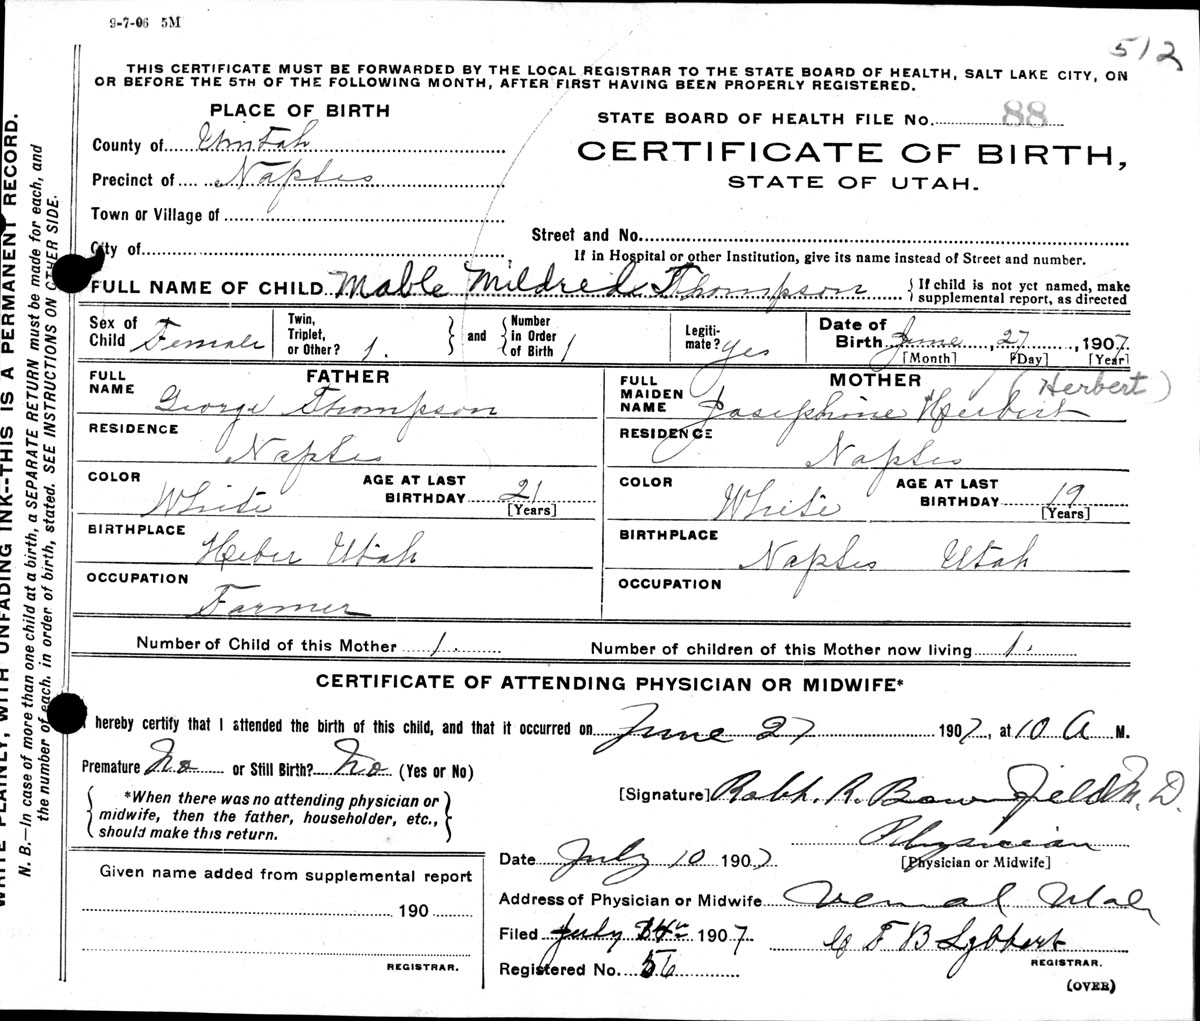 9-7-06 5M
512
THIS CERTIFICATE MUST BE FORWARDED BY THE LOCAL REGISTRAR TO THE STATE BOARD OF HEALTH, SALT LAKE CITY, ON
OR BEFORE THE 5TH OF THE FOLLOWING MONTH, AFTER FIRST HAVING BEEN PROPERLY REGISTERED.
PLACE OF BIRTH
STATE BOARD OF HEALTH FILE No. 88
County of Uintah
CERTIFICATE OF BIRTH,
STATE OF UTAH.
Precinct of Naples
Town or Village of
Street and No.
City of
If in Hospital or other Institution, give its name instead of Street and number.
FULL NAME OF CHILD Mable Mildred Thompson { If child is not yet named, make
supplemental report, as directed
Sex of Child Female
Twin, Triplet, or Other? 1.
and
Number in Order of Birth 1
Legiti-mate? yes
Date of Birth June 27, 1907.
[Month] [Day] [Year]
FATHER
FULL NAME George Thompson
RESIDENCE Naples
COLOR White
AGE AT LAST BIRTHDAY 21
[Years]
BIRTHPLACE Heber Utah
OCCUPATION Farmer
MOTHER
(Herbert)
FULL MAIDEN NAME Josephine Herbert
RESIDENCE Naples
COLOR White
AGE AT LAST BIRTHDAY 19
[Years]
BIRTHPLACE Naples Utah
OCCUPATION
Number of Child of this Mother 1.
Number of children of this Mother now living 1.
CERTIFICATE OF ATTENDING PHYSICIAN OR MIDWIFE*
I hereby certify that I attended the birth of this child, and that it occurred on June 27 1907, at 10 A M.
Premature No or Still Birth? No (Yes or No)
*When there was no attending physician or
midwife, then the father, householder, etc.,
should make this return.
[Signature] R. Bownfield M. D.
Physician
[Physician or Midwife]
Date July 10 1907
Address of Physician or Midwife Vernal Utah
Filed July 1907
F B Lybbert
REGISTRAR.
Registered No. 56
(OVER)
Given name added from supplemental report
190
REGISTRAR.
WRITE PLAINLY, WITH UNFADING INK--THIS IS A PERMANENT RECORD.
N. B.—In case of more than one child at a birth, a SEPARATE RETURN must be made for each, and
the number of each, in order of birth, stated. SEE INSTRUCTIONS ON OTHER SIDE.